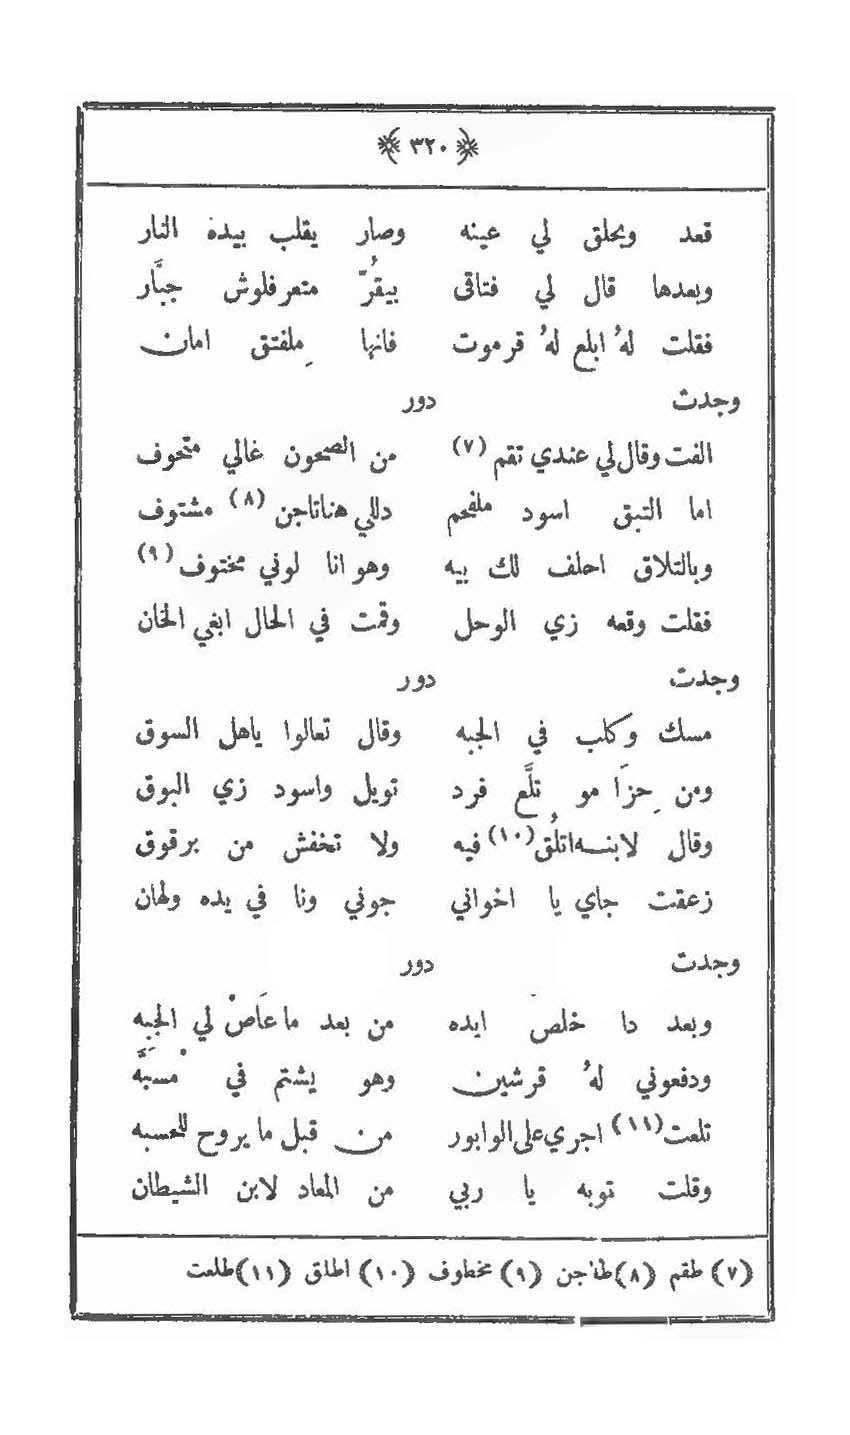 ٣٢٠
قعد وبحلق لي عينه وصار يقلب بيده النار
وبعدها قال لي فتاقى بيقُرّ متعرفلوش جبَّار
فقلت لهُ ابلع لهُ قرموت فانها مِلفتق امان
وجدت دور
الفت وقال لي عندي تقم (٧) من الصحون غالي متحوف
اما التبق اسود ملفحم دللي هناتاجن (٨) مشتوف
وبالتلاق احلف لك بيه وهو انا لوني مختوف (٩)
فقلت وقعه زي الوحل وقمت في الحال ابغي الخان
وجدت دور
مسك وكلب في الجبه وقال تعالوا ياهل السوق
ومن حِزَا مو تلَّع فرد تويل واسود زي البوق
وقال لابنه اتلُق (١٠) فيه ولا تخفش من برقوق
زعقت جاي يا اخواني جوني ونا في يده ولهان
وجدت دور
وبعد دا خلص ايده من بعد ما عَاصْ لي الجبه
ودفعوني لهُ قرشين وهو يشتم في مْسَبَّه
تلعت (١١) اجري على الوابور من قبل ما يروح للحسبه
وقلت توبه يا ربي من المعاد لابن الشيطان
(٧) طقم (٨) طاجن (٩) مخطوف (١٠) اطلق (١١) طلعت